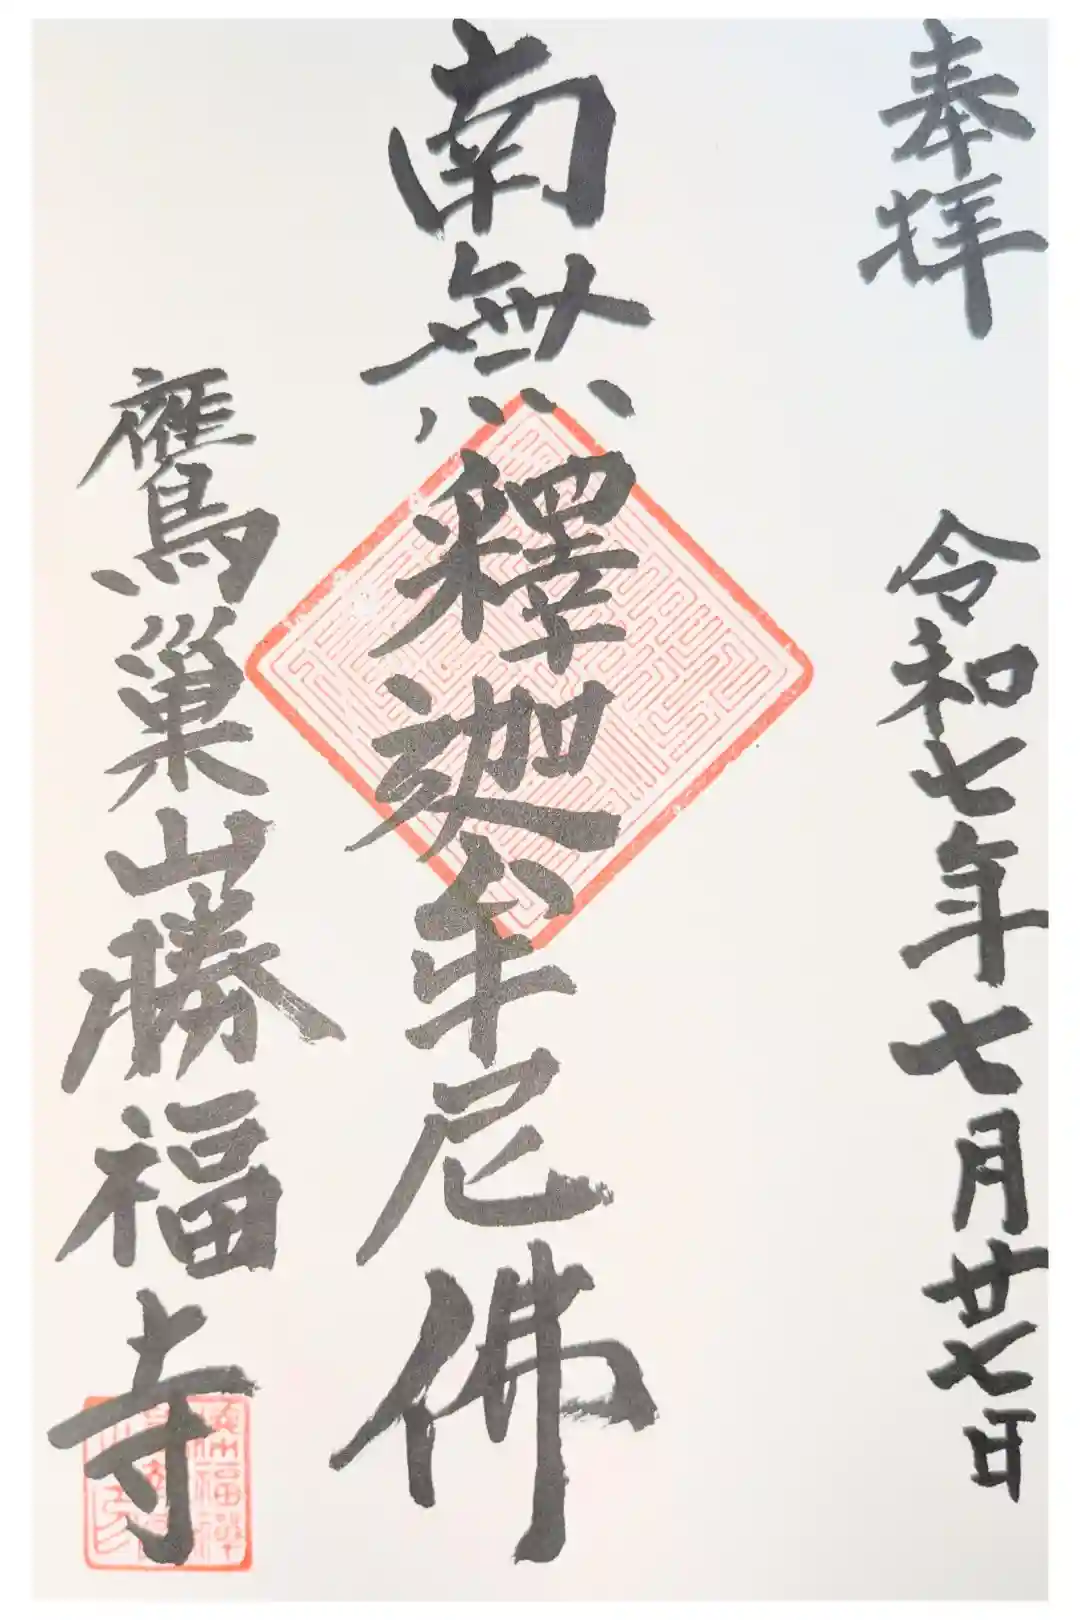 奉拝
令和七年七月廿七日
南無釋迦牟尼佛
鷹巣山勝福寺